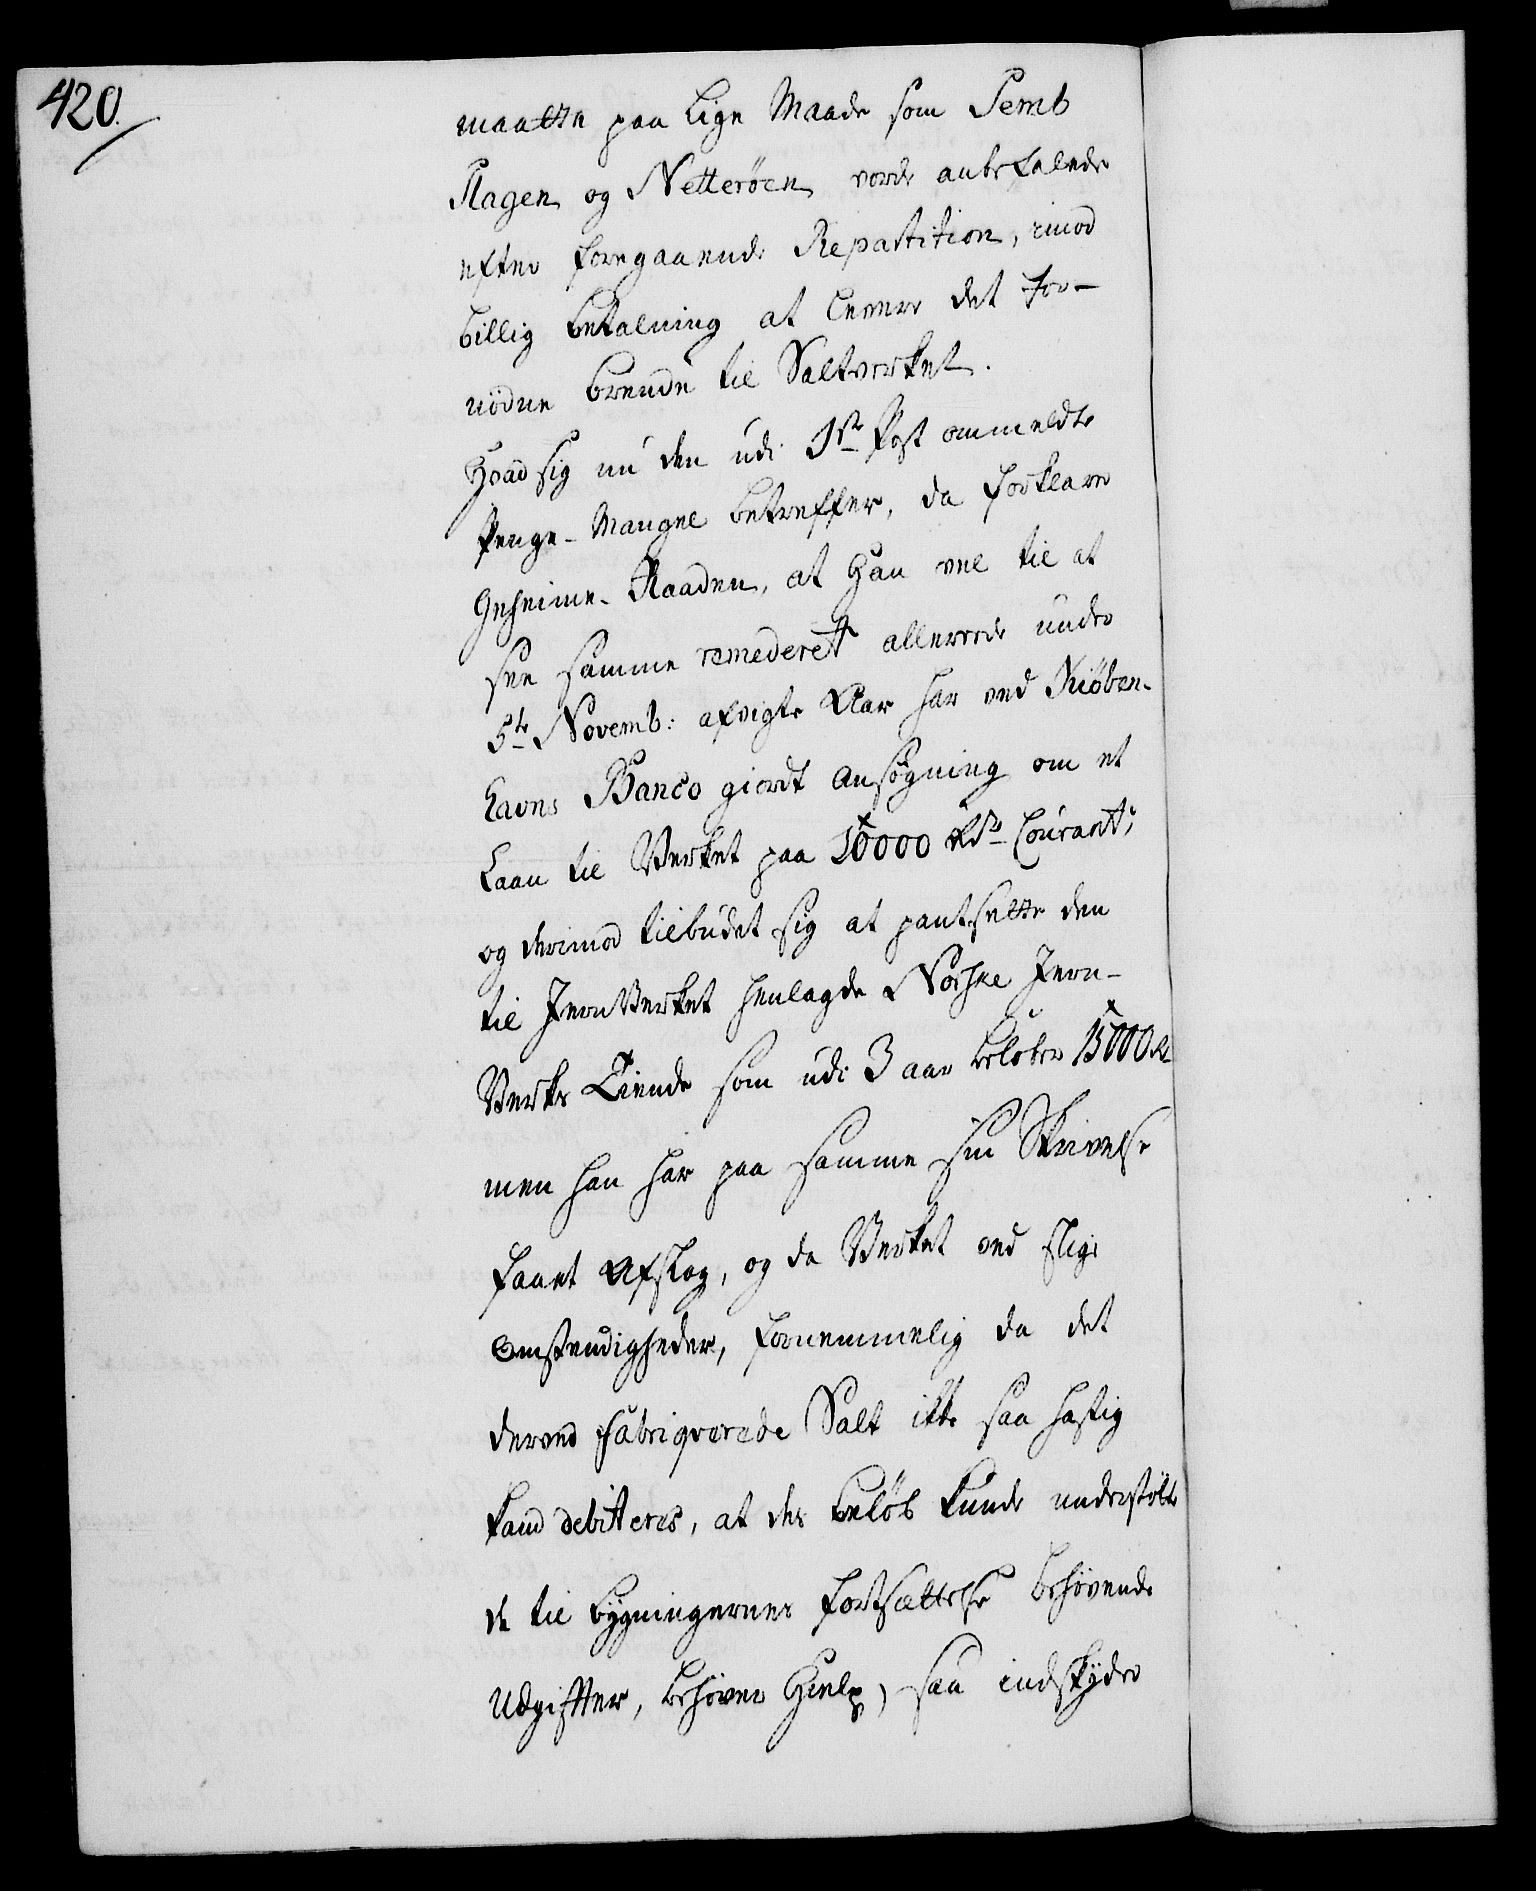 420.
maatte paa lige Maade som Semb
Slagen og Netteröen vorde anbefalede
efter foregaaende Repartition, imod
billig betalning at levere det for-
nödne brende til Saltverket.
Hvad sig nu den udi 1ste Post ommeldte
Penge-Mangel betreffer, da forklarer
Geheime-Raaden, at han vel til at
see samme remederet allerede under
5te Novemb: afvigte Aar har ved Kiöben-
havns Banco giordt ansögning om et
Laan til Verket paa 10000 Rdr Courant,
og derimod tilbudet sig at pantsette den
til Jern Verket henlagde Norske Jern-
Verks Tiende som udi 3 aar belöber 15000 Rd
men han har paa samme sin Skrivelse
faaet Afslag, og da Verket ved slige
Omstendigheder, fornemmelig da det
derved fabriqverede Salt ikke saa hastig
kand debitteres, at des belöb kunde understötte
de til bygningernes fortsættelse behövende
Udgiffter, behöver Hielp, saa indskyder